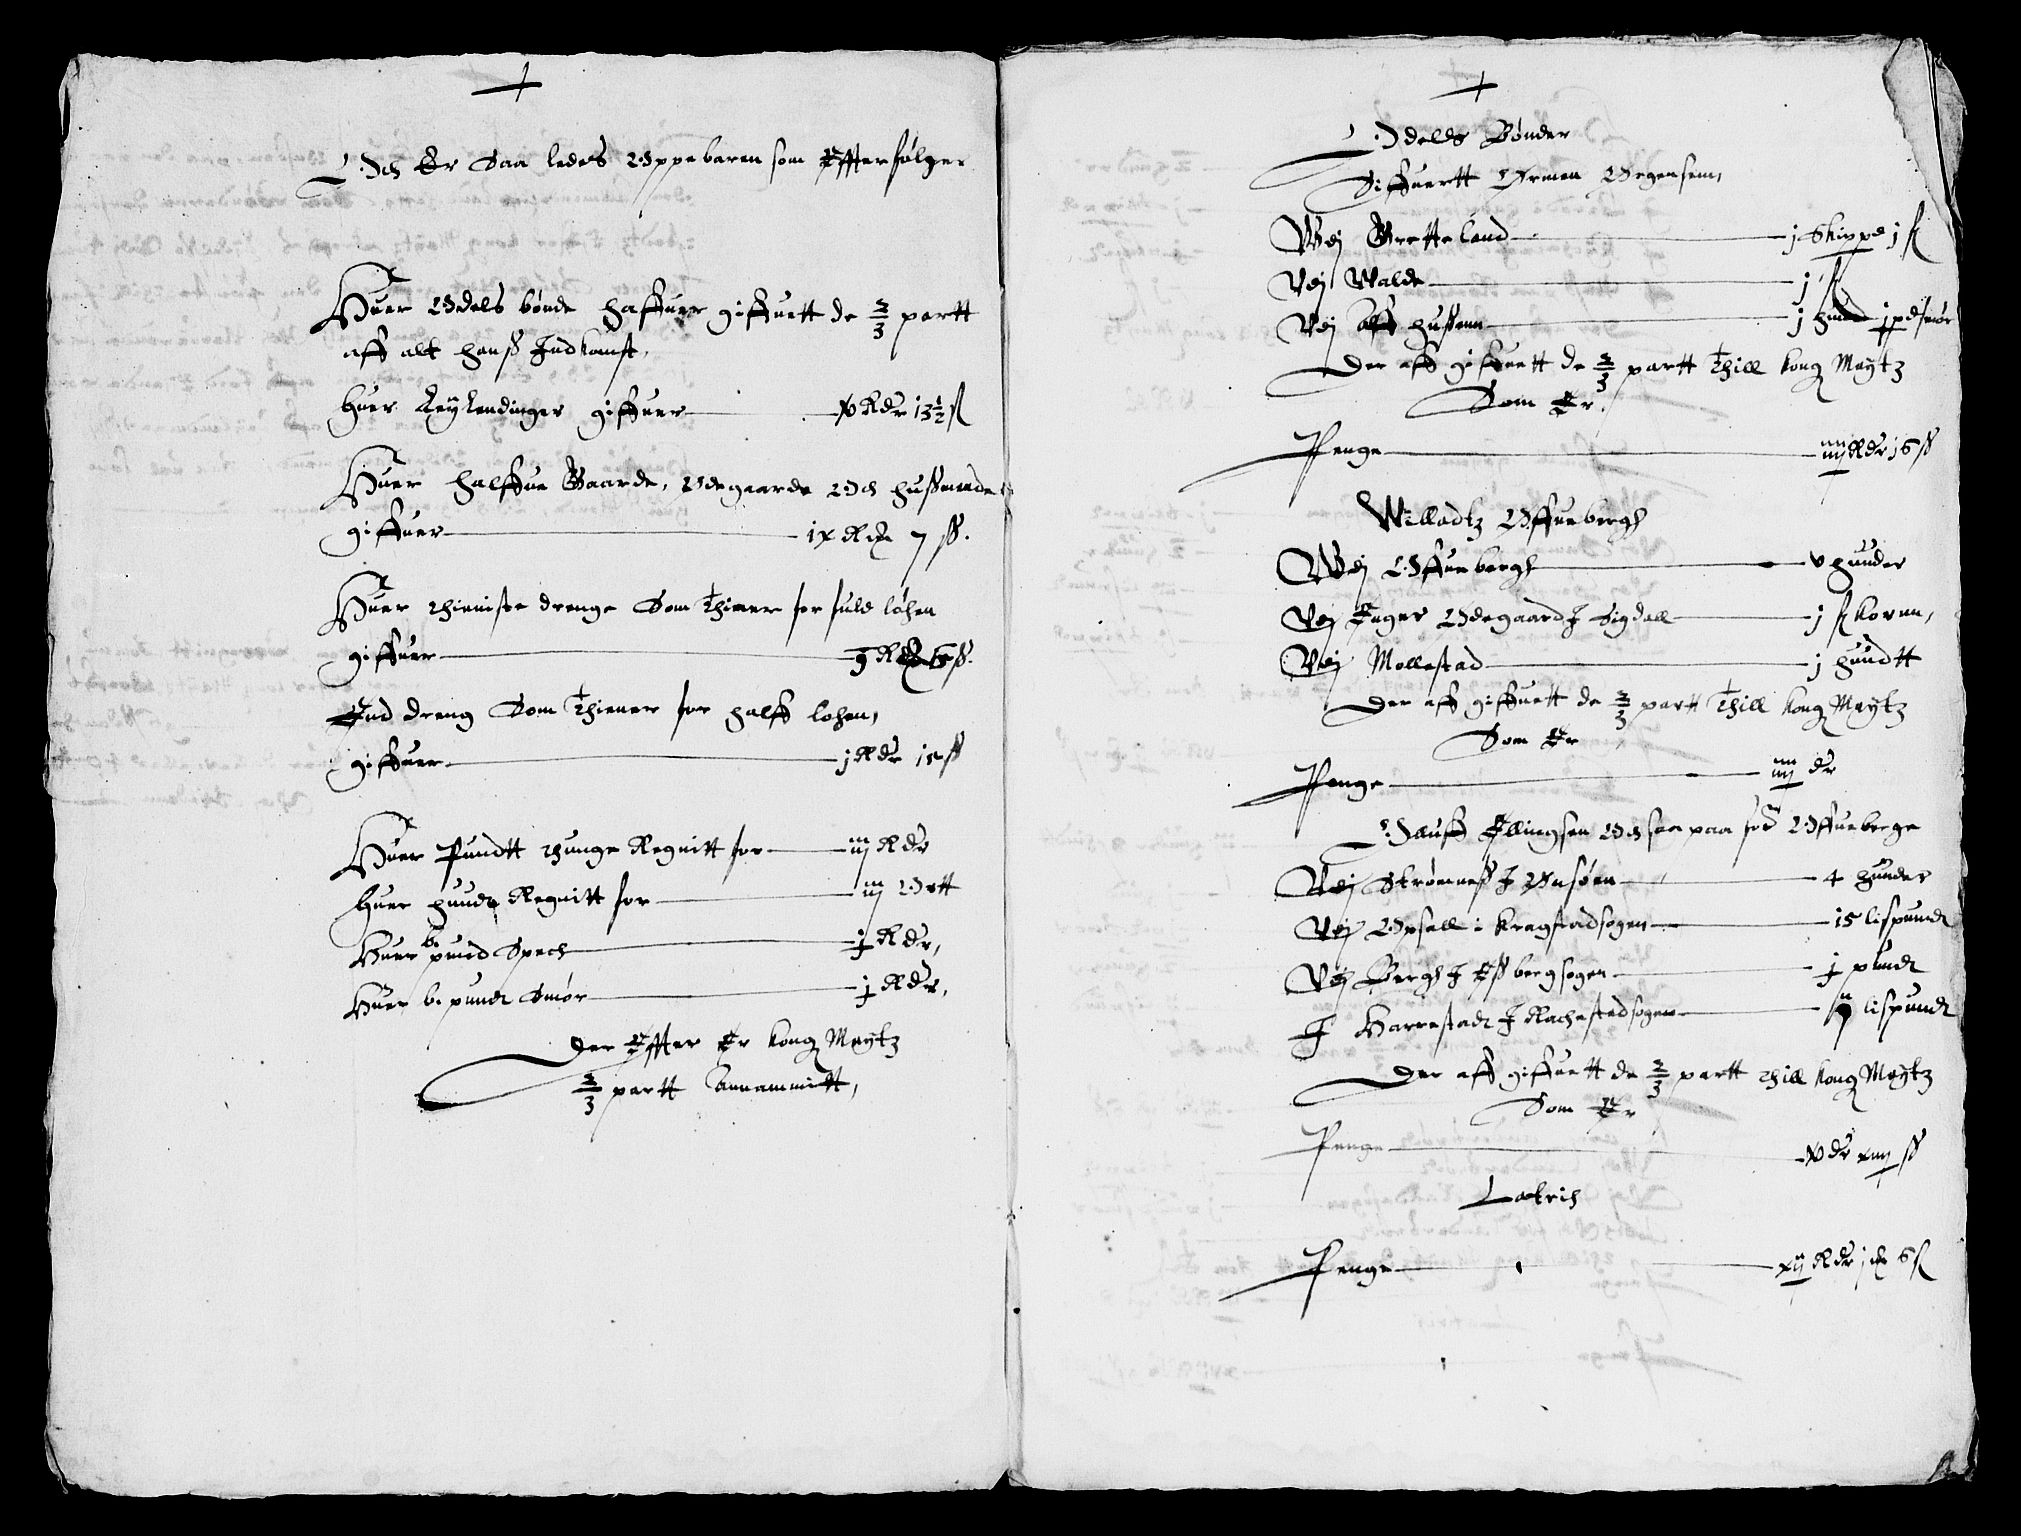 Och Er Saa ledes Oppebaren som Effterfølger
Huer Odels bønde haffuer giffuett de 2/3 partt
aff alt hanß Indkomst,
Huer Leÿlendinger giffuer x Rdr 13½ ß
Huer halffue Gaarde, Ødegaarde Och hußmende
giffuer 7 ß.
Huer thieniste drenge Som thiener for fuld løhen
giffuer
End dreng Som thiener for halff lohen,
giffuer j Rdr 15 ß
Huer Pundtt thunge Regnitt for iiij Rdr
Huer hund Regnitt for iij Ortt
Huer b. pund Spech j Rdr,
Huer b. pundt Smør j Rdr,
Der Effter Er Kong Maÿtz
2/3 partt Annammitt,
Odells Bønder
Siffuertt Ormen
Wej Gretteland j Skippd j ß
Wej Walde j ß
Wej hußenn j hund j pd smør
Der aff giffuett de 2/3 partt thill Kong Maÿtz
Som Er,
Penge iiij Rdr 16 ß
Willadtz Offuebergh
Wej Offuebergh v hunder
Wej Enger Ødegaard J Sigdall j ß Korn,
Wej Mollestad j hundtt
Der aff giffuett de 2/3 partt thill Kong Maÿtz
Som Er
Penge dr
Olluff Ellingsen Och saa paa for Offueberge
Wej Strømneß J 4 hunder
Wej Opsall i Kragstadsogen 15 lispundt
Wej Bergh J Eßbergsogen j pundt
J Harrestadt J Rachestadsogen lispundt
Der aff giffuett de 2/3 partt thill Kong Maÿtz
Som Er
Penge x dr xiiij ß
Latris
Penge xij Rdr j 6 ß